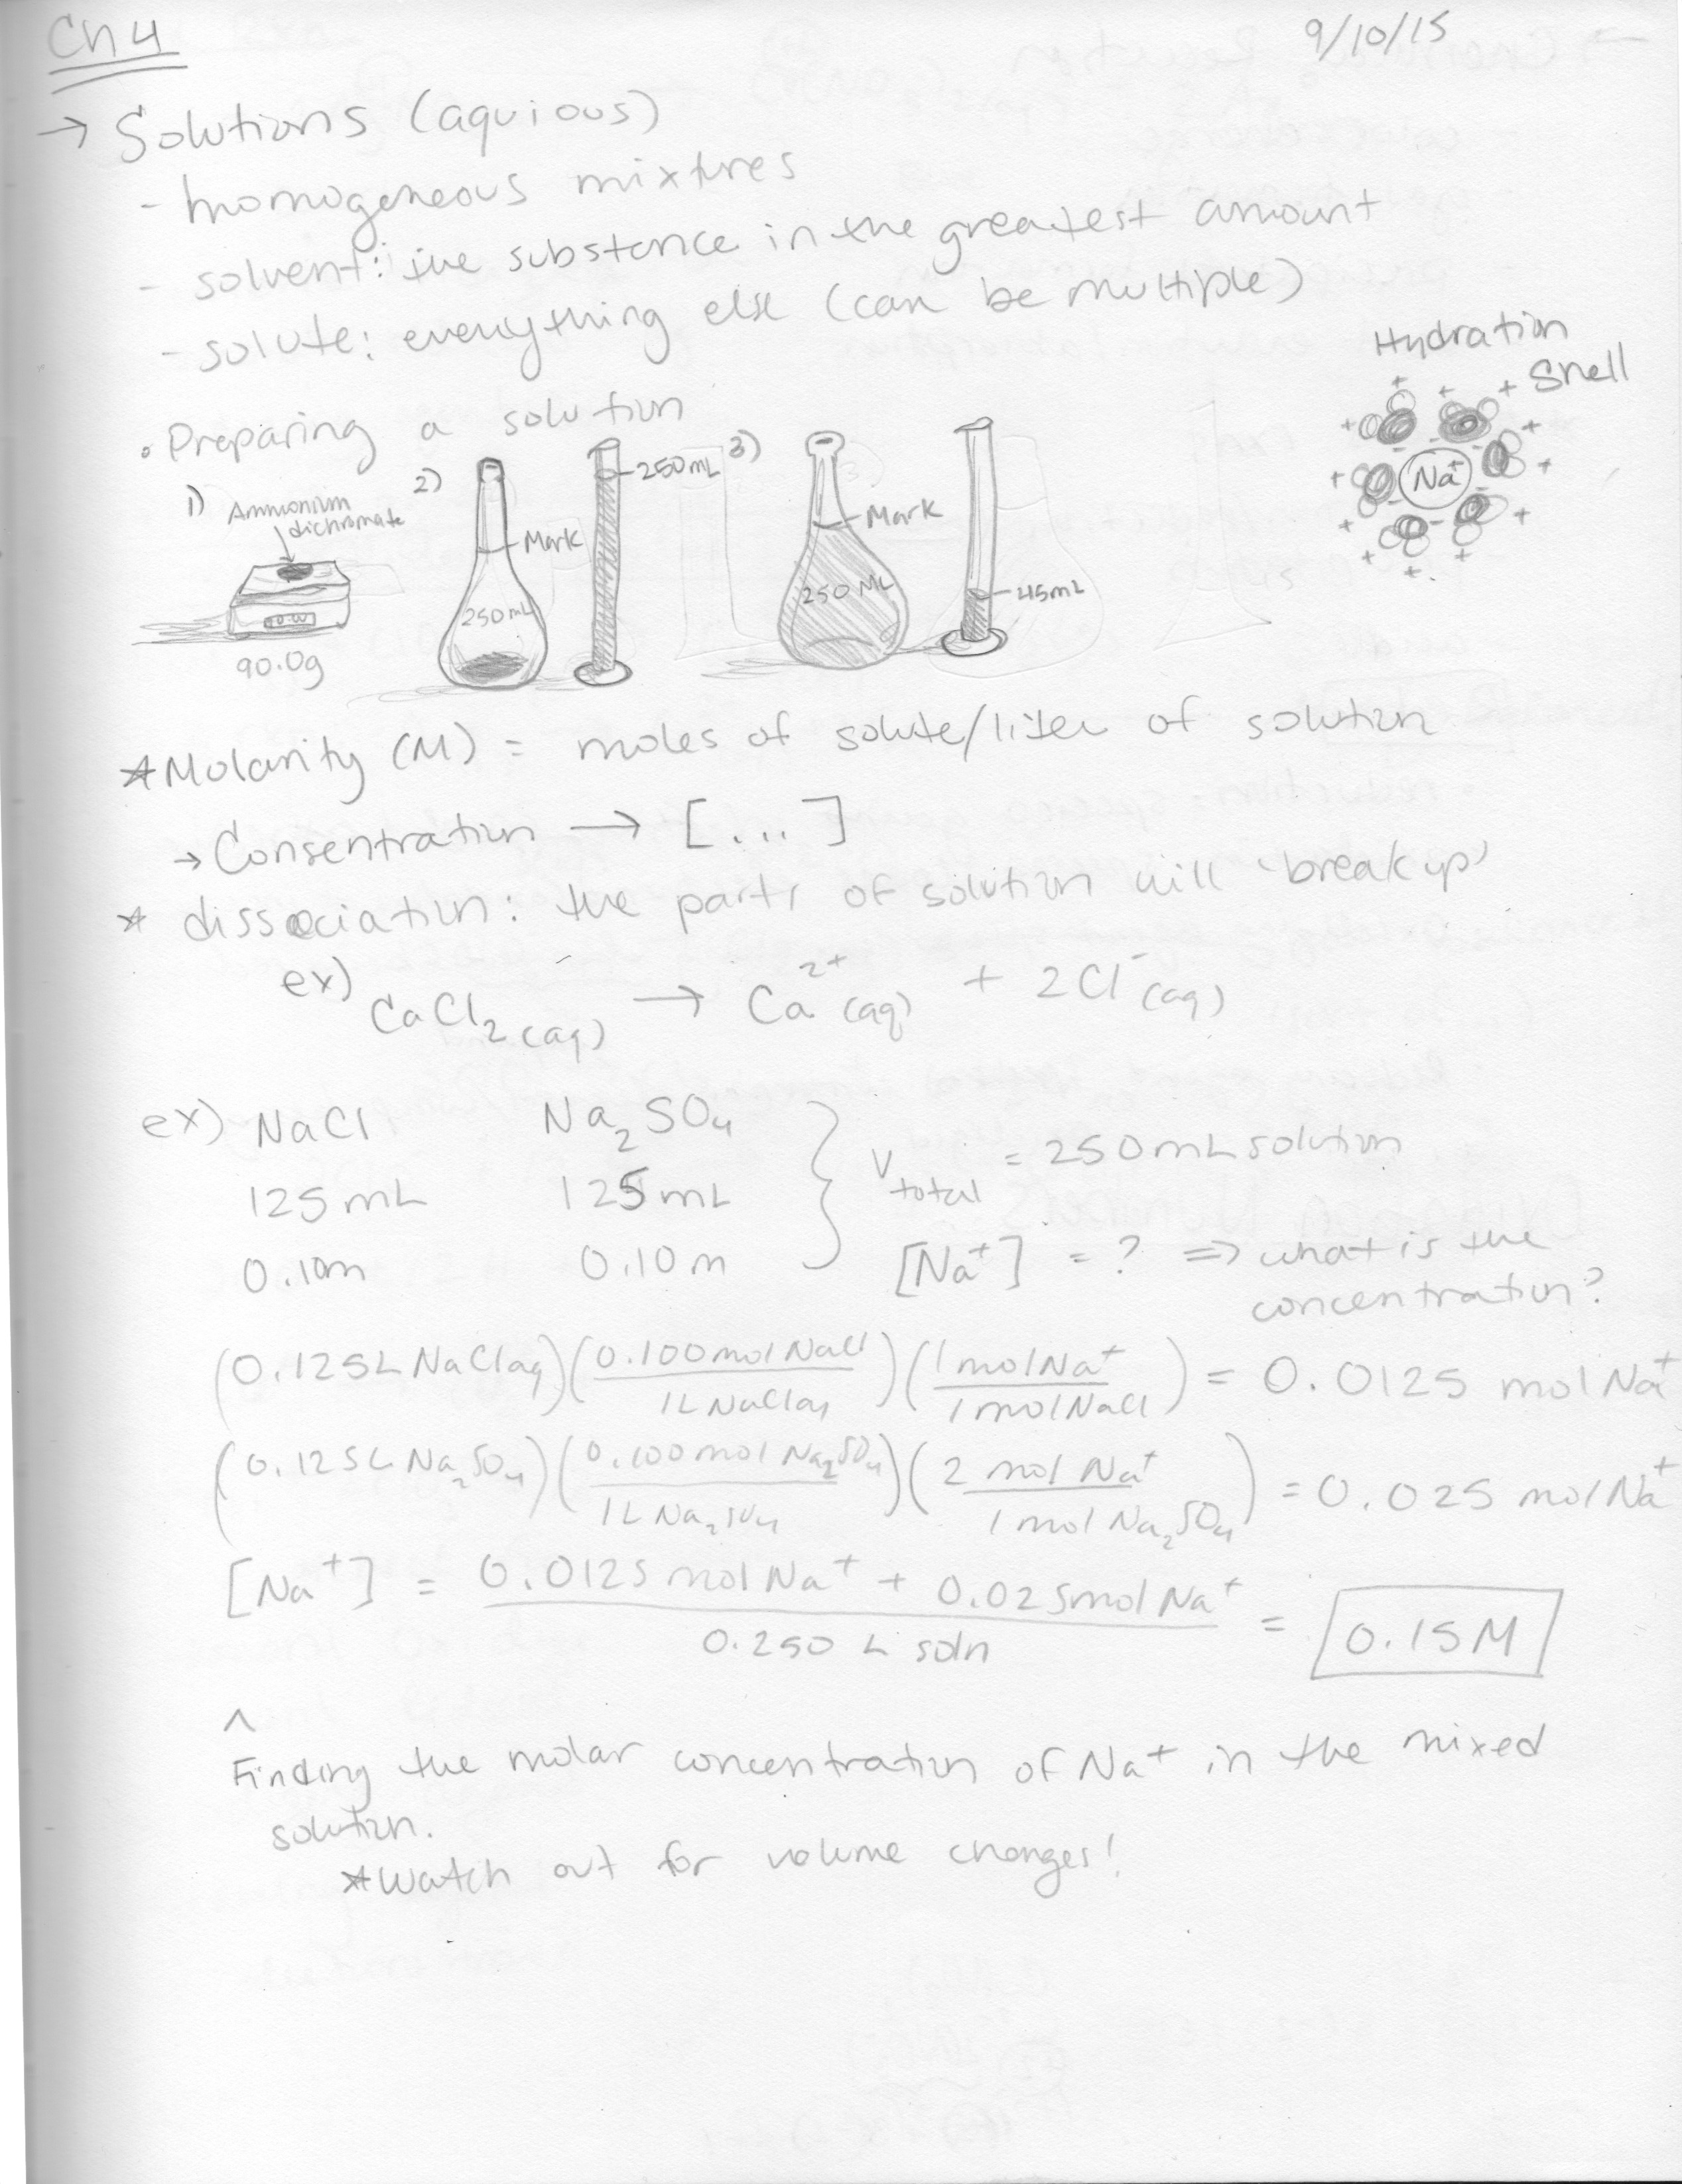 Ch 4
9/10/15
→ Solutions (aquious)
- homogeneous mixtures
- solvent: the substance in the greatest amount
- solute: everything else (can be multiple)
Hydration
Shell
• Preparing a solution
1) Ammonium
dichromate
90.0g
2)
Mark
250mL
250mL
3)
Mark
250 mL
45mL
Na+
*Molarity (M) = moles of solute/liter of solution
→ Consentration → [...]
* dissociation: the parts of solution will 'break up'
ex) CaCl₂(aq) → Ca²⁺(aq) + 2Cl⁻(aq)
ex) NaCl Na₂SO₄
125mL 125mL
0.10m 0.10m
V total = 250mL solution
[Na⁺] = ? ⇒ what is the
concentration?
(0.125L NaClaq)(0.100mol NaCl/1L NaClaq)(1molNa⁺/1molNaCl) = 0.0125 molNa⁺
(0.125L Na₂SO₄)(0.100mol Na₂SO₄/1L Na₂SO₄)(2 mol Na⁺/1mol Na₂SO₄) = 0.025 molNa⁺
[Na⁺] = 0.0125molNa⁺ + 0.025molNa⁺/0.250 L soln = 0.15M
^
Finding the molar concentration of Na+ in the mixed
solution.
*Watch out for volume changes!